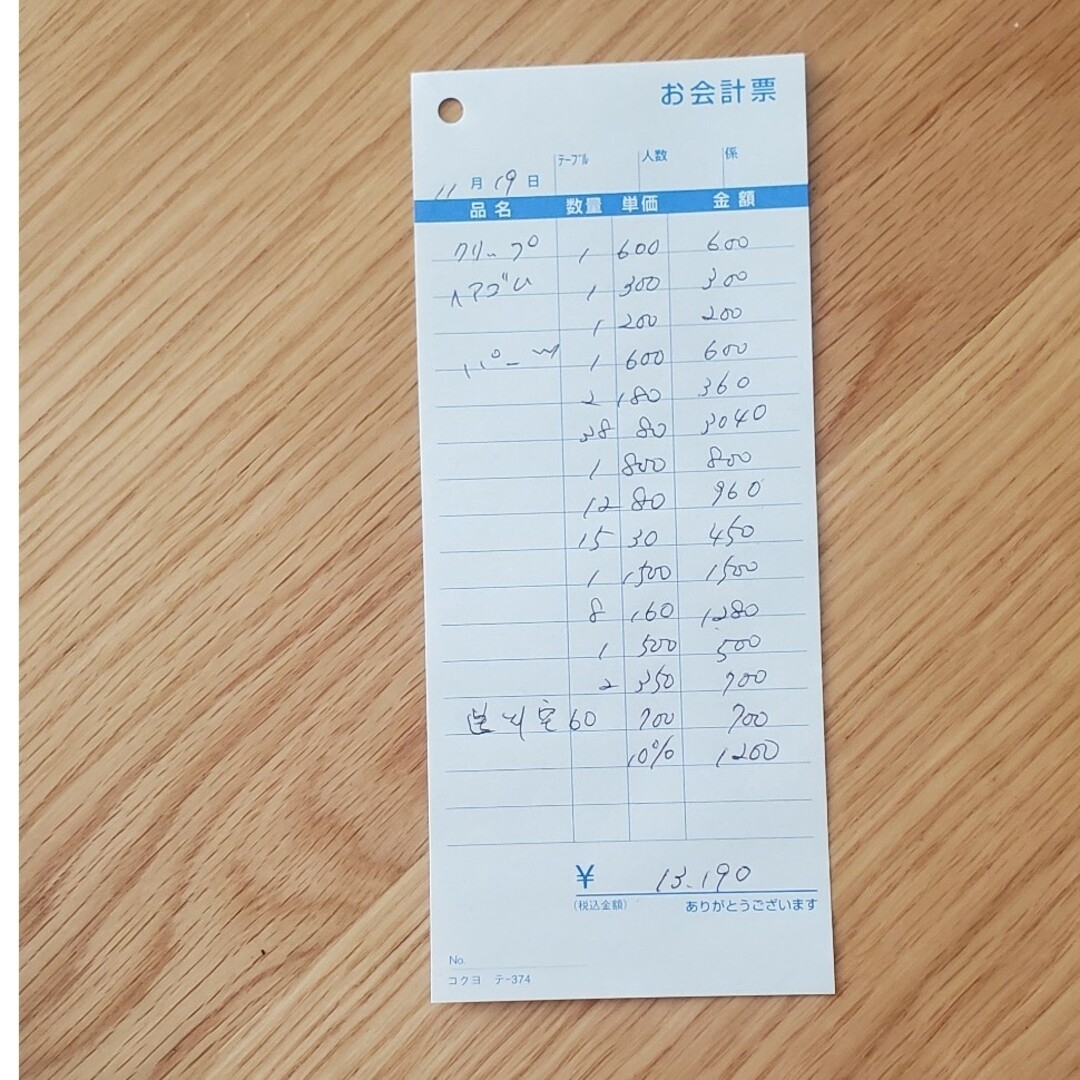 お会計票
テーブル 人数 係
11月19日
品名 数量 単価 金額
クリップ 1 600 600
ヘアゴム 1 300 300
1 200 200
パーツ 1 600 600
2 180 360
38 80 3040
1 800 800
12 80 960
15 30 450
1 1500 1500
8 160 1280
1 500 500
2 350 700
60 700 700
10% 1200
¥ 13.190
(税込金額) ありがとうございます
No.
コクヨ テ-374